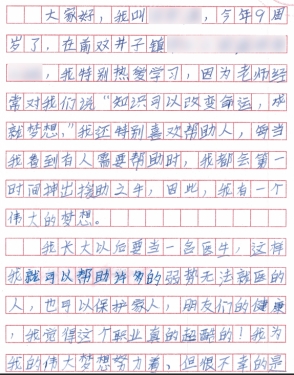 大家好，我叫，今年9周
岁了，在前双井子镇
，我特别热爱学习，因为老师经
常对我们说“知识可以改变命运，成
就梦想。”我还特别喜欢帮助人，每当
我看到有人需要帮助时，我都会第一
时间抻出援助之手，因此，我有一个
伟大的梦想。
我长大以后要当一名医生，这样
我就可以帮助许多的弱势无法就医的
人，也可以保护家人，朋友们的健康
，我觉得这个职业真的超酷的！我为
我的伟大梦想努力着，但很不幸的是